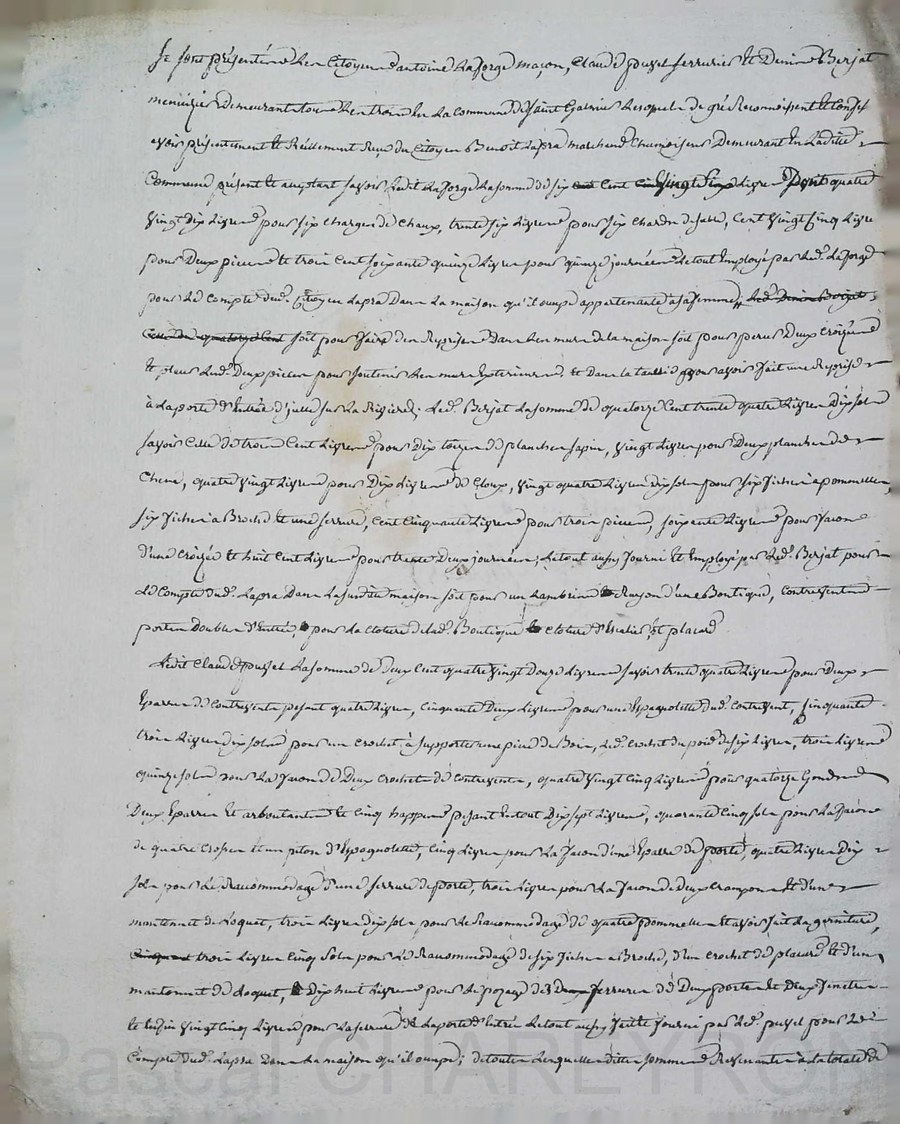 Se sont présentés les Citoyens antoine Laforge maçon, Claude puzel serrurier et Denis Berjat
menuizier demeurants tous les trois en la Commune de Saint Galmier Lesquels de gré Reconnoissent et Confessent
avoir présentement et Réellement Reçu du Citoyen Benoit Lapra marchand Chamoiseur Demeurant en Ladite
Commune présent et acceptant savoir Ledit Laforge La somme de six cent vingt six Livres Dont quatre
vingt dix Livres pour six charges de Chaux, trente six Livres pour six Chards de sable, Cent vingt Cinq Livres
pour Deux pierres et trois Cent soixante quinze Livres pour quinze journées Le tout Employé par Led. Laforge
pour Le Compte dud. Citoyen Lapra Dans La maison qu'il occupe appartenante a sa femme, Led. Denis Berjat
quatorze Cent soit pour faire des Reprises Dans Les murs de la maison soit pour percer Deux croizées
et placer Lesd. Deux pierres pour soutenir Les murs exterieurs et Dans la pour avoir fait une Reprise
à La porte d'Entrée d'icelle sur La Rivière; Led. Berjat La somme de quatorze Cent trente quatre Livres Dix sols
savoir Celle de trois Cent Livres pour Dix toizes de planches sapin, vingt Livres pour Deux planches de
Chene, quatre vingt Livres pour Dix Livres de Cloux, vingt quatre Livres Dix sols pour six fiches a pomelles,
six fiches à Broche et une serrure, Cent Cinquante Livres pour trois pieces, soixante Livres pour facon
d'une Croizée et huit Cent Livres pour trente Deux journées; Le tout aussy fourni et Employé par Led. Berjat pour
Le Compte dud. Lapra Dans La susditte maison soit pour un Lambris d'une Boutique, Contrevents
portes Doubles d'Entrée, pour La Cloture de lad. Boutique Cloture d'Escalier et placard
Ledit Claude puzel La somme de Deux Cent quatre vingt Douze Livres savoir trente quatre Livres pour Deux
Eparres de Contrevents pesant quatre Livres, Cinquante Deux Livres pour une Espagnolette dud. Contrevent, Cinquante
trois Livres dix sols pour un Crochet à supporter une piece de Bois, Led. Crochet du poid de six Livres, trois Livres
quinze sols pour La facon de Deux Crochets de Contrevents, quatre vingt Cinq Livres pour quatorze Gonds
Deux Eparres et arboutants et Cinq happes pesant En tout Dix sept Livres, quarante Cinq sols pour La facon
de quatre et un piton d'Espagnolette, Cinq Livres pour La facon d'une Eparre de porte, quatre Livres Dix
sols pour Le Raccommodage d'une serrure de porte, trois Livres pour La facon de Deux Crampons et d'un
mantonnet de Loquet, trois Livres dix sols pour Le Raccommodage de quatre pommelles et avoir fait La garniture,
trois Livres Cinq sols pour Le Raccommodage de six fiches a Broche, d'un Crochet de placard et d'un
mantonnet de Loquet, Dix huit Livres pour Le pozage de serrures de Deux portes et Deux fenetres
et Enfin vingt Cinq Livres pour La serrure de La porte d'Entrée Le tout aussy fait et fourni par Led. puzel pour Le
Compte dud. Lapra Dans La maison qu'il occupe; de toutes Lesquelles dittes sommes Revenantes à La totale de
Pascal CHARLEYRON